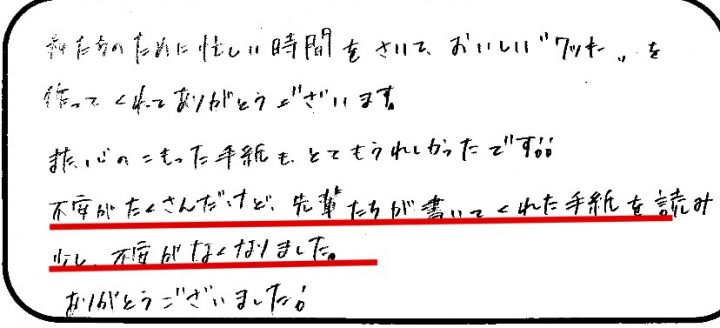 私たちのために忙しい時間をさいて、おいしい"クッキー"を
作ってくれてありがとうございます。
また、心のこもった手紙も、とてもうれしかったです!!
不安がたくさんだけど、先輩たちが書いてくれた手紙を読み
少し、不安がなくなりました。
ありがとうございました!